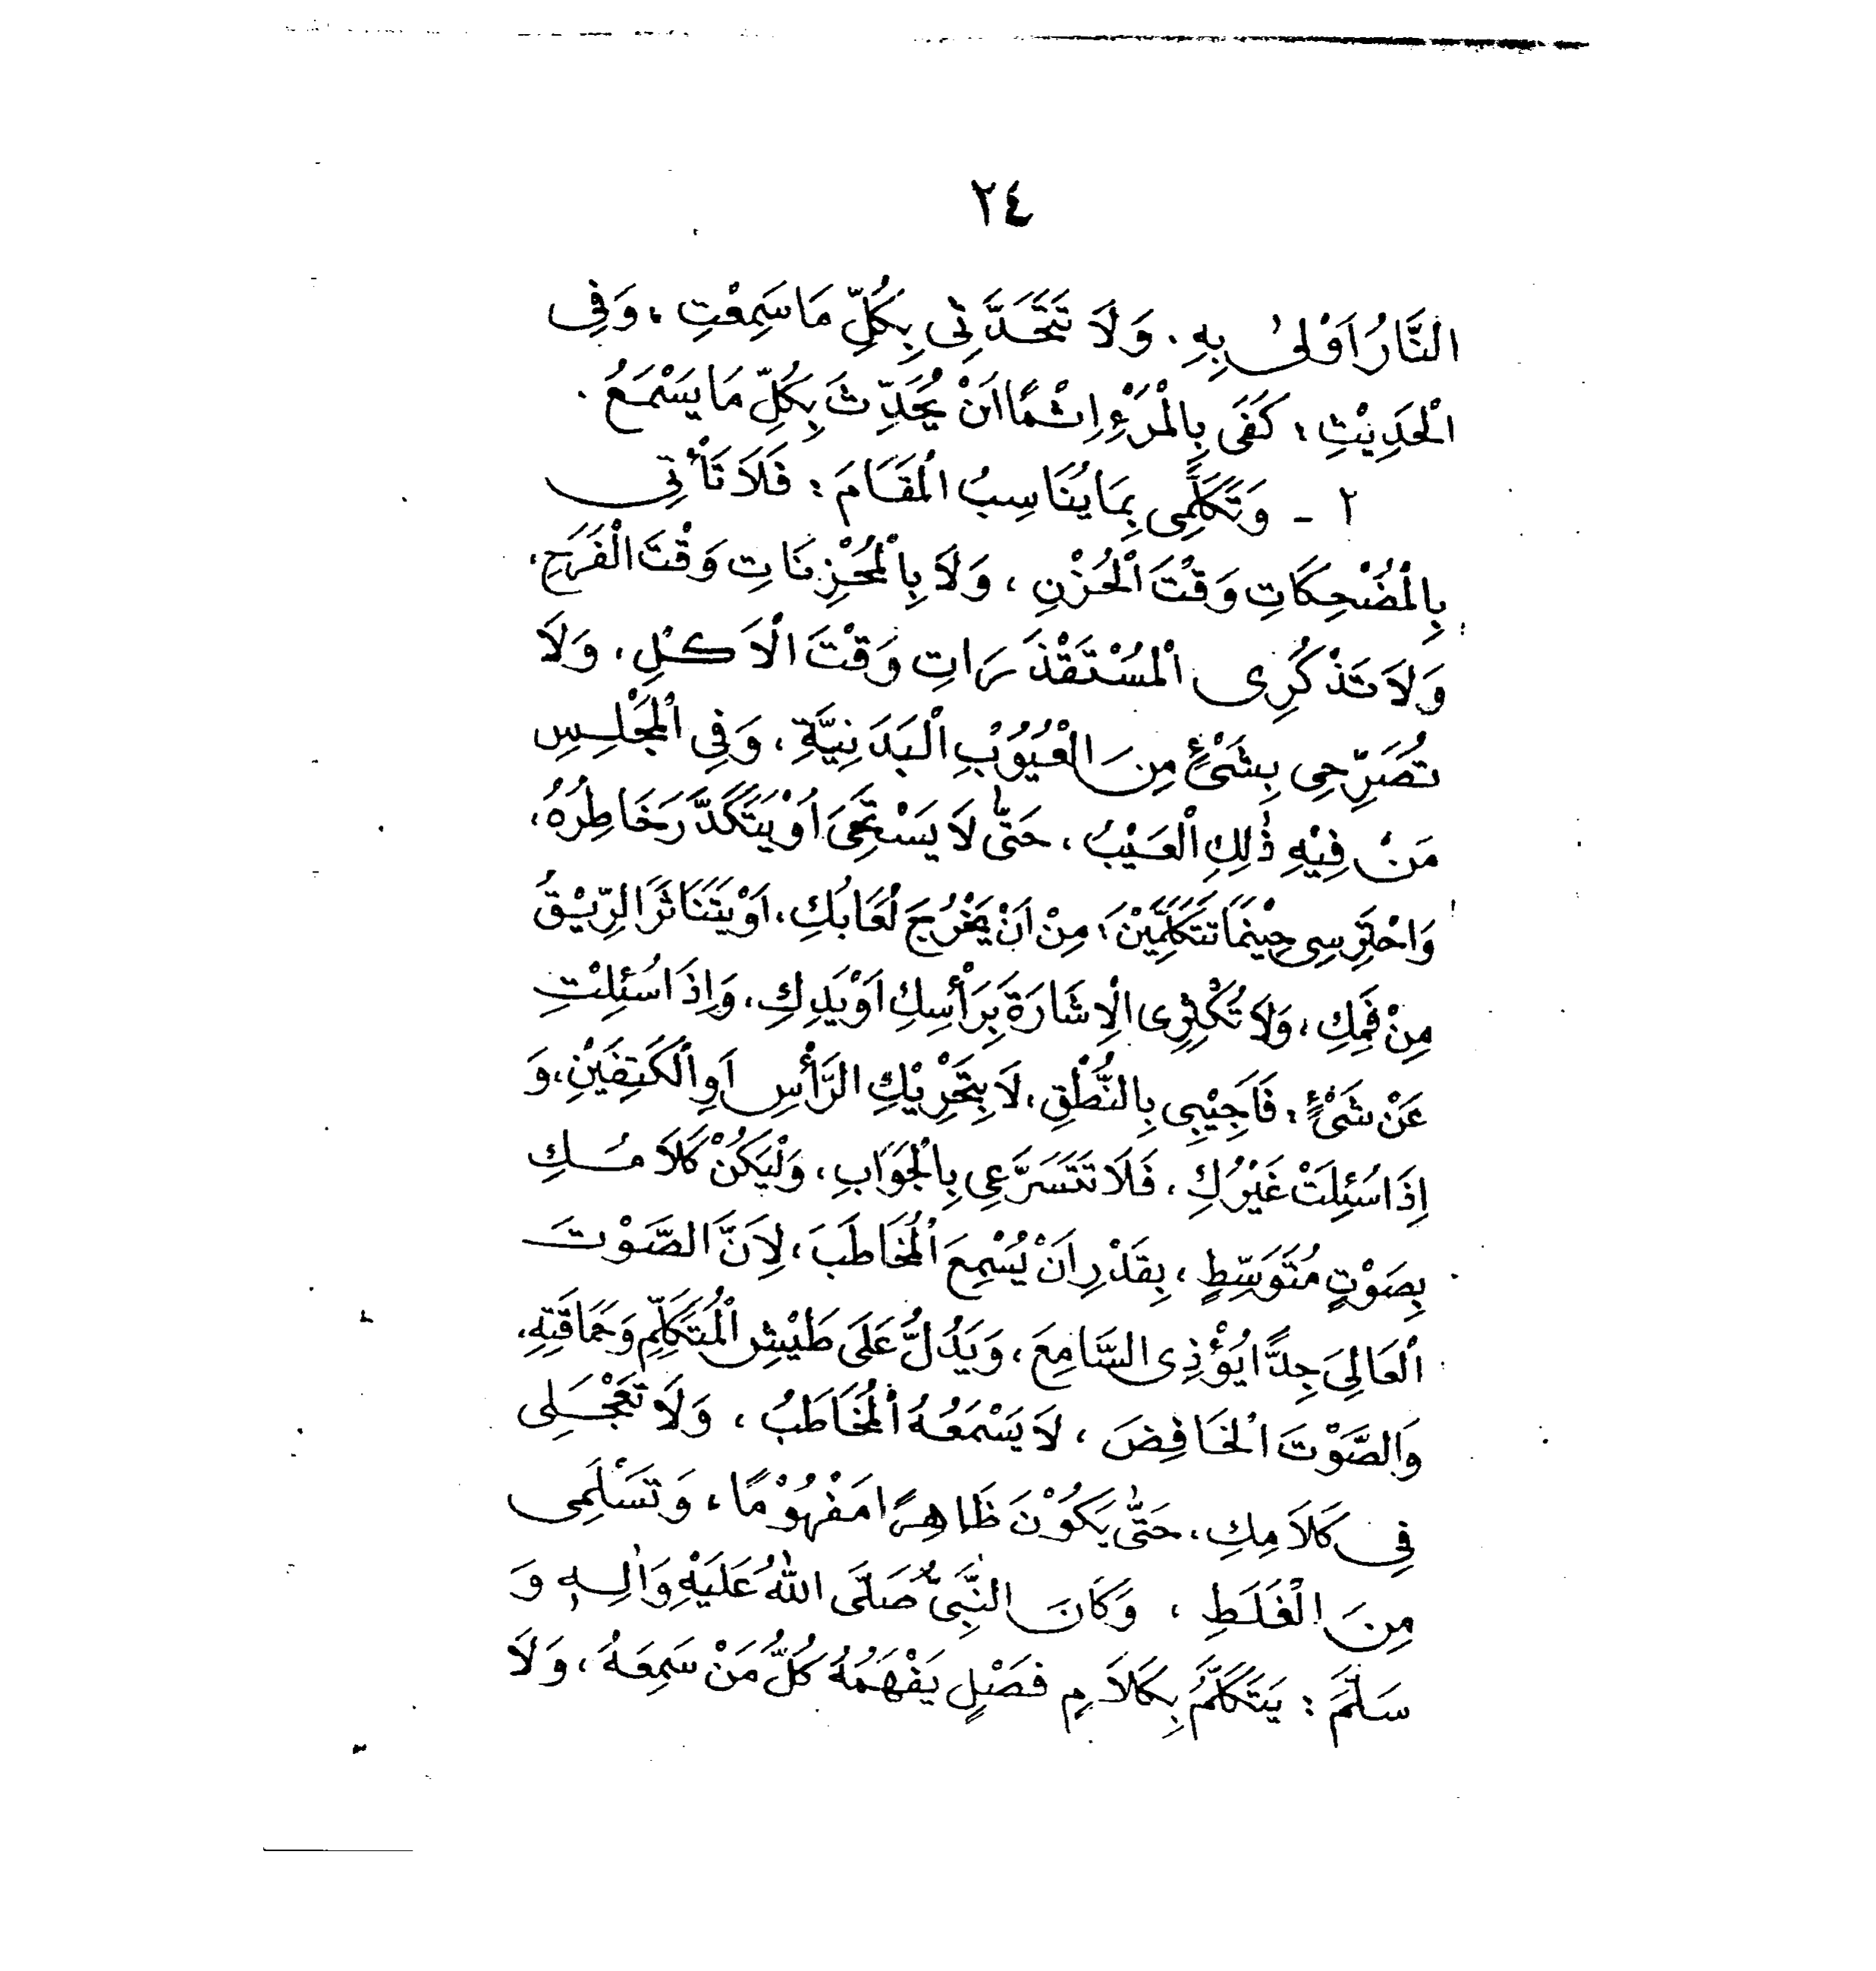 ٢٤
النَّارُ اَوْلىٰ بِهِ. وَلَا تَتَحَدَّثِى بِكُلِّ مَا سَمِعْتِ، وَفِى
الْحَدِيْثِ؛ كَفَى بِالْمَرْءِ اِثْمًا اَنْ يُحَدِّثَ بِكُلِّ مَا يَسْمَعُ.
٢ - وَتَكَلَّمِى بِمَا يُنَاسِبُ الْمَقَامَ: فَلَا تَأْتِى
بِالْمُضْحِكَاتِ وَقْتَ الْحُزْنِ، وَلَا بِالْمُحْزِنَاتِ وَقْتَ الْفَرَحِ،
وَلَا تَذْكُرِى الْمُسْتَقْذَرَاتِ وَقْتَ الْاَكْلِ، وَلَا
تُصَرِّحِى بِشَىْءٍ مِنَ الْعُيُوْبِ الْبَدَنِيَّةِ، وَفِى الْمَجْلِسِ
مَنْ فِيْهِ ذٰلِكِ الْعَيْبُ، حَتّٰى لَا يَسْتَحْىَ اَوْ يَتَكَدَّرَ خَاطِرُهُ،
وَاحْتَرِسِى حِيْنَمَا تَتَكَلَّمِيْنَ؛ مِنْ اَنْ يَخْرُجَ لُعَابُكِ، اَوْ يَتَنَاثَرَ الرِّيْقُ
مِنْ فَمِكِ، وَلَا تُكْثِرِى الْاِشَارَةَ بِرَأْسِكِ اَوْ يَدِكِ، وَاِذَا سُئِلْتِ
عَنْ شَىْءٍ، فَاَجِيْبِى بِالنُّطْقِ، لَا بِتَحْرِيْكِ الرَّأْسِ اَوِ الْكَتِفَيْنِ، وَ
اِذَا سُئِلَتْ غَيْرُكِ، فَلَا تَتَسَرَّعِى بِالْجَوَابِ، وَلْيَكُنْ كَلَامُكِ
بِصَوْتٍ مُتَوَسِّطٍ، بِقَدْرِ اَنْ يُسْمِعَ الْمُخَاطَبَ، لِاَنَّ الصَّوْتَ
الْعَالِىَ جِدًّا يُؤْذِى السَّامِعَ، وَيَدُلُّ عَلَى طَيْشِ الْمُتَكَلِّمِ وَحَمَاقَتِهِ،
وَالصَّوْتَ الْخَافِضَ، لَا يَسْمَعُهُ الْمُخَاطَبُ، وَلَا تَعْجَلِى
فِى كَلَامِكِ، حَتّٰى يَكُوْنَ ظَاهِرًا مَفْهُوْمًا، وَتَسْلَمِى
مِنَ الْغَلَطِ، وَكَانَ النَّبِىُّ صَلَّى اللّٰهُ عَلَيْهِ وَاٰلِهِ وَ
سَلَّمَ: يَتَكَلَّمُ بِكَلَامٍ فَصْلٍ يَفْهَمُهُ كُلُّ مَنْ سَمِعَهُ، وَلَا